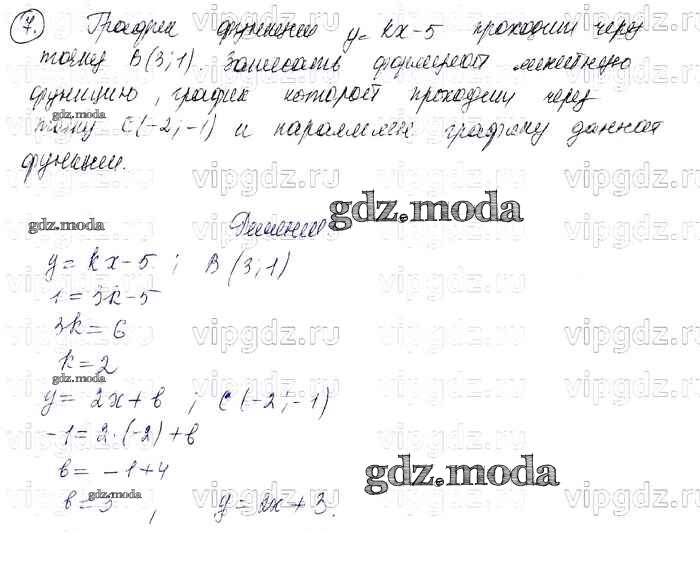 7. График функции y = kx - 5 проходит через
точку B(3; 1). Запишите формулой линейную
функцию, график которой проходит через
точку C(-2; -1) и параллелен графику данной
функции.
gdz.moda
gdz.moda
gdz.moda
Решение
y = kx - 5 ; B (3; 1)
1 = 3k - 5
3k = 6
k = 2
gdz.moda
y = 2x + b ; C (-2; -1)
-1 = 2·(-2) + b
b = -1 + 4
gdz.moda
b = 3 , y = 2x + 3.
gdz.moda
vipgdz.ru